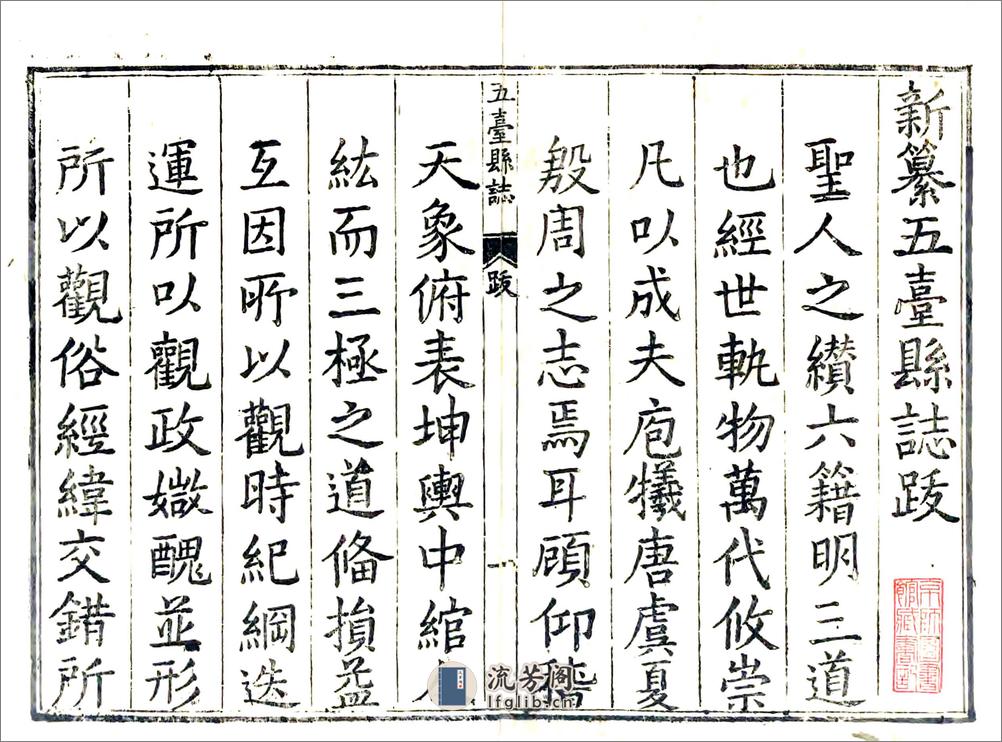 新纂五臺縣誌跋
聖人之纘六籍明三道
也經世軌物萬代攸崇
凡以成夫庖犧唐虞夏
殷周之志焉耳顧仰稽
五臺縣誌 跋 一
天象俯表坤輿中綰人
紘而三極之道俻損益
互因所以觀時紀綱迭
運所以觀政媺醜並形
所以觀俗經緯交錯所
京師圖書
館藏書印
流芳閣
lfglib.cn